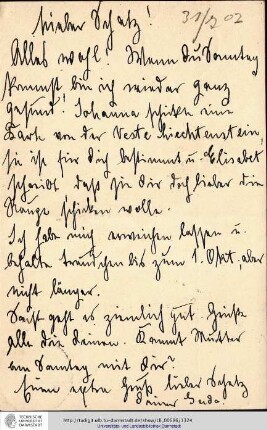 Lieber Schatz!
31/8 02
Alles wohl. Wenn du Sonntag
kommst bin ich wieder ganz
gesund! Johanna schickte eine
Karte von der Veste Liechtenstein,
sie ist für dich bestimmt u. Elisabet
schreibt dass sie dir doch lieber die
schicken wolle.
Ich habe mich erweichen lassen u.
behalte bis zum 1. Okt., aber
nicht länger.
Sonst geht es ziemlich gut. Grüße
alle die deinen. Kommt Mutter
am Sonntag mit dir?
Einen extra Gruß lieber Schatz
deiner Gerda.
TECHNISCHE
UNIVERSITÄT
DARMSTADT
Universitäts- und Landesbibliothek Darmstadt